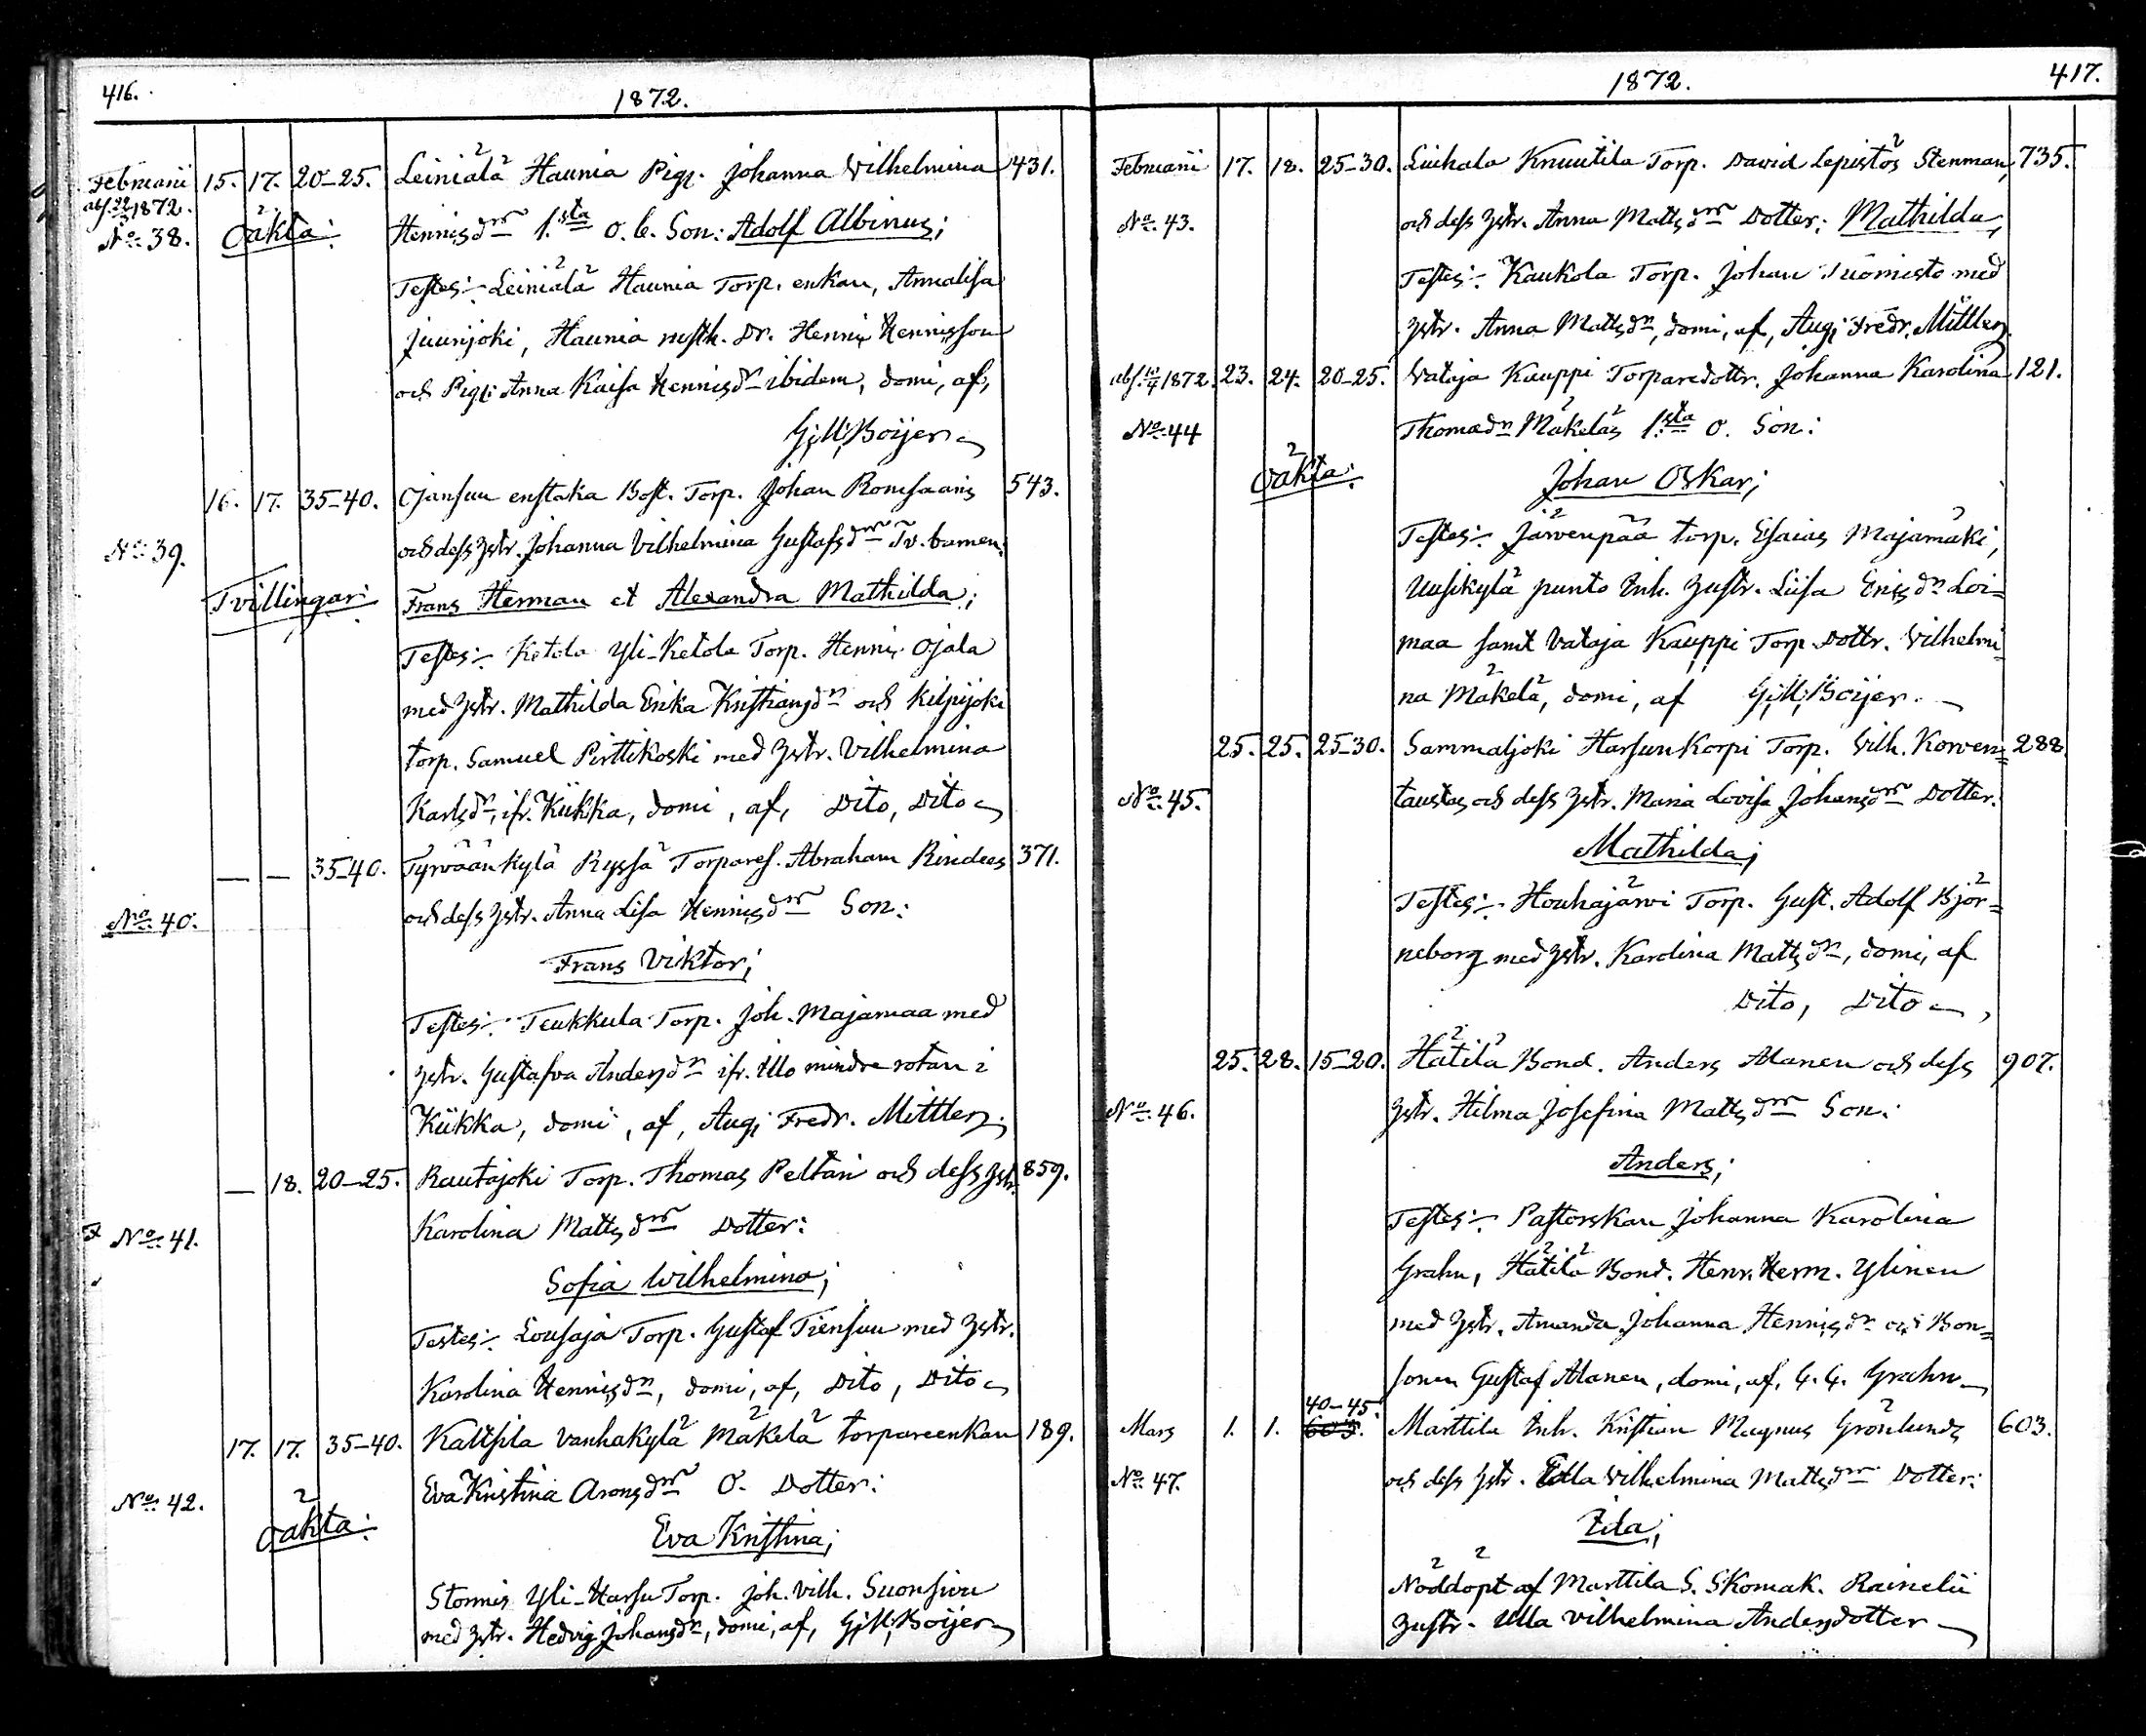 416.
1872.
Februarii 15. 17. 20–25. Leiniälä Haunia Pig. Johanna Wilhelmina 431.
abs. 22/3 1872.
No 38. Oäkta: Henrigsdr 1.sta o. b. Son: Adolf Albinus;
Testes:– Leiniälä Haunia Torp. enkan, Annalisa
Juunjoki, Haunia Dr. Henric Henrigsson
och Pig: Anna Kaisa Henrigsdr ibidem, domi, af,
G. M. Boijer
16. 17. 35–40. Ojansuu enstaka Bost. Torp. Johan Romsaaris 543.
No 39. och dess hstr. Johanna Vilhelmina Gustafsdr Tv. barnen:
Tvillingar: Frans Herman et Alexandra Mathilda;
Testes:– Ketola Yli-Ketola Torp. Henric Ojala
med hstr. Mathilda Erika Kristiansdr och Kilpijoki
torp. Samuel Pirttikoski med hstr. Vilhelmina
Karlsdr, ifr. Kiikka, domi, af, Dito, Dito
— — 35–40. Tyrväänkylä Ryssä Torpares. Abraham Rindees 371.
No 40. och dess hstr. Anna Lisa Henrigsdr Son:
Frans Viktor;
Testes:– Teukkula Torp. Joh. Majamaa med
hstr. Gustafva Andersdr ifr. Illo mindre rotan i
Kiikka, domi, af, Aug. Fredr. Mittler
— 18. 20–25. Rautajoki Torp. Thomas Peltari och dess hstr. 859.
No 41. Karolina Mattsdr Dotter:
Sofia Wilhelmina;
Testes:– Lousaja Torp. Gustaf Tiensuu med hstr.
Karolina Henrigsdr, domi, af, Dito, Dito
17. 17. 35–40. Kaltsila Vanhakylä Mäkelä torpareenkan 189.
No 42. Oäkta: Eva Kristina Aronsdr O. Dotter:
Eva Kristina;
Stormis Yli-Harsu Torp. Joh. Vilh. Suonsivu
med hstr. Hedvig Johansdr, domi, af, G. M. Boijer
1872.
417.
Februarii 17. 18. 25–30. Liuhala Knuutila Torp. David Lepistös Stenman, 735.
No 43. och dess hstr. Anna Mattsdr Dotter: Mathilda,
Testes:– Kaukola Torp. Johan Tuomisto med
hstr. Anna Mattsdr, domi, af, Aug. Fredr. Mittler
1872. 23. 24. 20–25. Vataja Kauppi Torparedottr. Johanna Karolina 121.
No 44 Thomædr Mäkeläs 1.sta o. Son:
Oäkta: Johan Oskar;
Testes:– Järvenpää torp. Esaias Majamäki,
Uusikylä punto Inh. hustr. Liisa Ericsdr Loi=
maa samt Vataja Kauppi Torp. Dottr. Vilhelmi=
na Mäkelä, domi, af G. M. Boijer.
25. 25. 25–30. Sammaljoki Harsunkorpi Torp. Vilh. Korven= 288
No 45. taustas och dess hstr. Maria Lovisa Johansdr Dotter:
Mathilda;
Testes:– Houhajärvi Torp. Gust. Adolf Björ=
neborg med hstr. Karolina Mattsdr, domi, af
Dito, Dito
25. 28. 15–20. Hätilä Bond. Anders Alanen och dess 907.
No 46. hstr. Hilma Josefina Mattsdr Son:
Anders;
Testes:– Pastorskan Johanna Karolina
Grahn, Hätilä Bond. Henr. Herm. Ylinen
med hstr. Amanda Johanna Henrigsdr och Bon=
sonen Gustaf Alanen, domi, af, G. G. Grahn
40–45.
Mars 1. 1. 603. Marttila Inh. Kristian Magnus Grönlunds 603.
No 47. och dess hstr. Edla Vilhelmina Mattsdr Dotter:
Ida;
Nöddöpt af Marttila S. Skomak. Rainelii
hustr. Ulla Vilhelmina Andersdotter